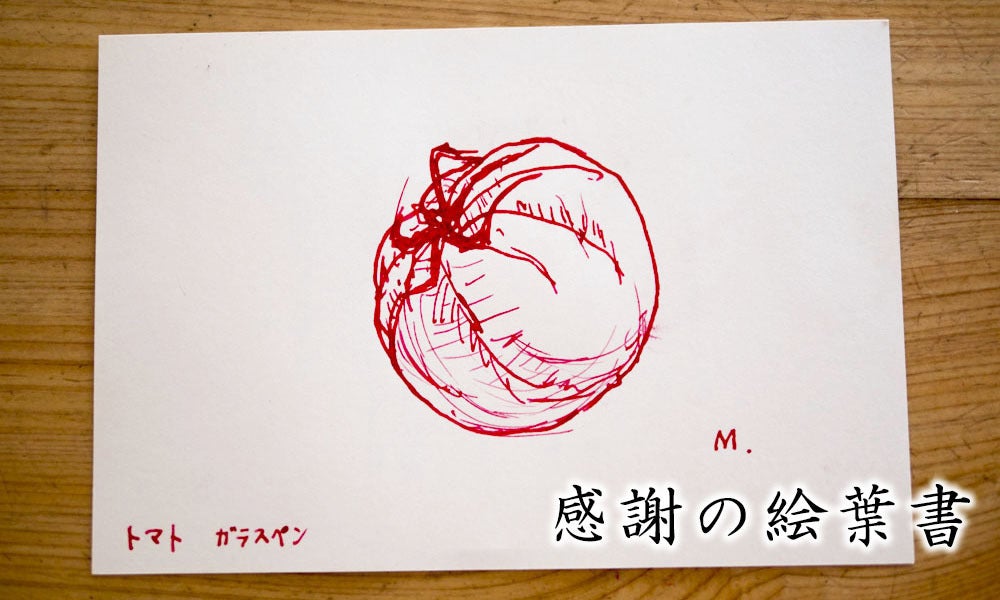 M.
トマト ガラスペン
感謝の絵葉書